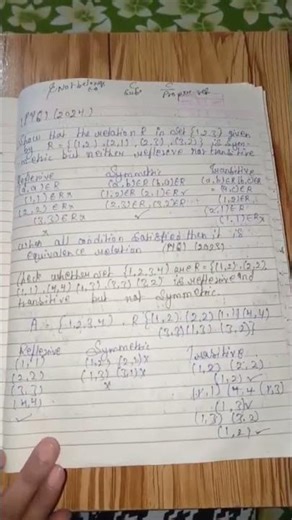 Not belongs
Sub
Proper set
(2024)
Show that the relation R in set {1,2,3} given
by R = {(1,2), (2,1), (2,3), (3,2)} is sym
metric but neither reflexive nor transitive
Reflexive Symmetric Transitive
(a,a)∈R (a,b)∈R (b,a)∈R (a,b)∈R
(1,1)∈R x (1,2)∈R (2,1)∈R ✓
(2,2)∈R x (2,3)∈R (3,2)∈R (1,2)∈R
(3,3)∈R x ✓ (2,1)∈R
x (1,1)∈R x
when all condition satisfied then it is
equivalence relation (2023)
Check whether set {1,2,3,4} R = {(1,2), (2,2),
(1,1), (4,4) (1,3), (3,3) (3,2)} is reflexive and
transitive but not symmetric
A = {1,2,3,4} R{(1,2) (2,2) (1,1)(4,4)
(3,3)(1,3) (3,2)}
Reflexive Symmetric Transitive
(1,1) (1,2) (2,1)x (1,2) (2,2)
(2,2) (1,3) (3,1)x (1,2) ✓
(3,3) x
(4,4) (1,3) ✓
✓ (1,3) (3,2)
(1,2) ✓